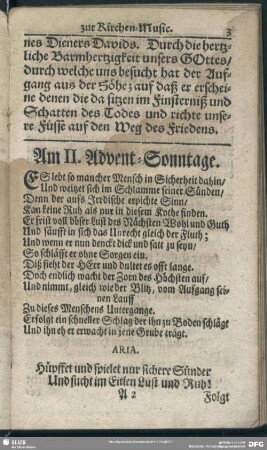 zur Kirchen-Music. 3
nes Dieners Davids. Durch die hertz-
liche Barmhertzigkeit unsers GOttes/
durch welche uns besucht hat der Auf-
gang aus der Höhe; auf daß er erschei-
ne denen die da sitzen im Finsterniß und
Schatten des Todes und richte unse-
re Füsse auf den Weg des Friedens.
Am II. Advent-Sonntage.
ES lebt so mancher Mensch in Sicherheit dahin/
Und weltzet sich im Schlamme seiner Sünden/
Denn der aufs Irrdische erpichte Sinn/
Kan keine Ruh als nur in diesem Kothe finden.
Er frist voll böser Lust des Nächsten Wohl und Guth
Und säufft in sich das Unrecht gleich der Fluth;
Und wenn er nun denckt dick und satt zu seyn/
So schläfft er ohne Sorgen ein.
Diß sieht der HErr und dultet es offt lange.
Doch endlich wacht der Zorn des Höchsten auf/
Und nimmt, gleich wie der Blitz, vom Aufgang sei-
nen Lauff
Zu dieses Menschens Untergange.
Es folgt ein schneller Schlag der ihn zu Boden schlägt
Und ihn eh er erwacht in jene Grube trägt.
ARIA.
Hüpffet und spielet nur sichere Sünder
Und sucht im Eitlen Lust und Ruh!
A 2 Folgt